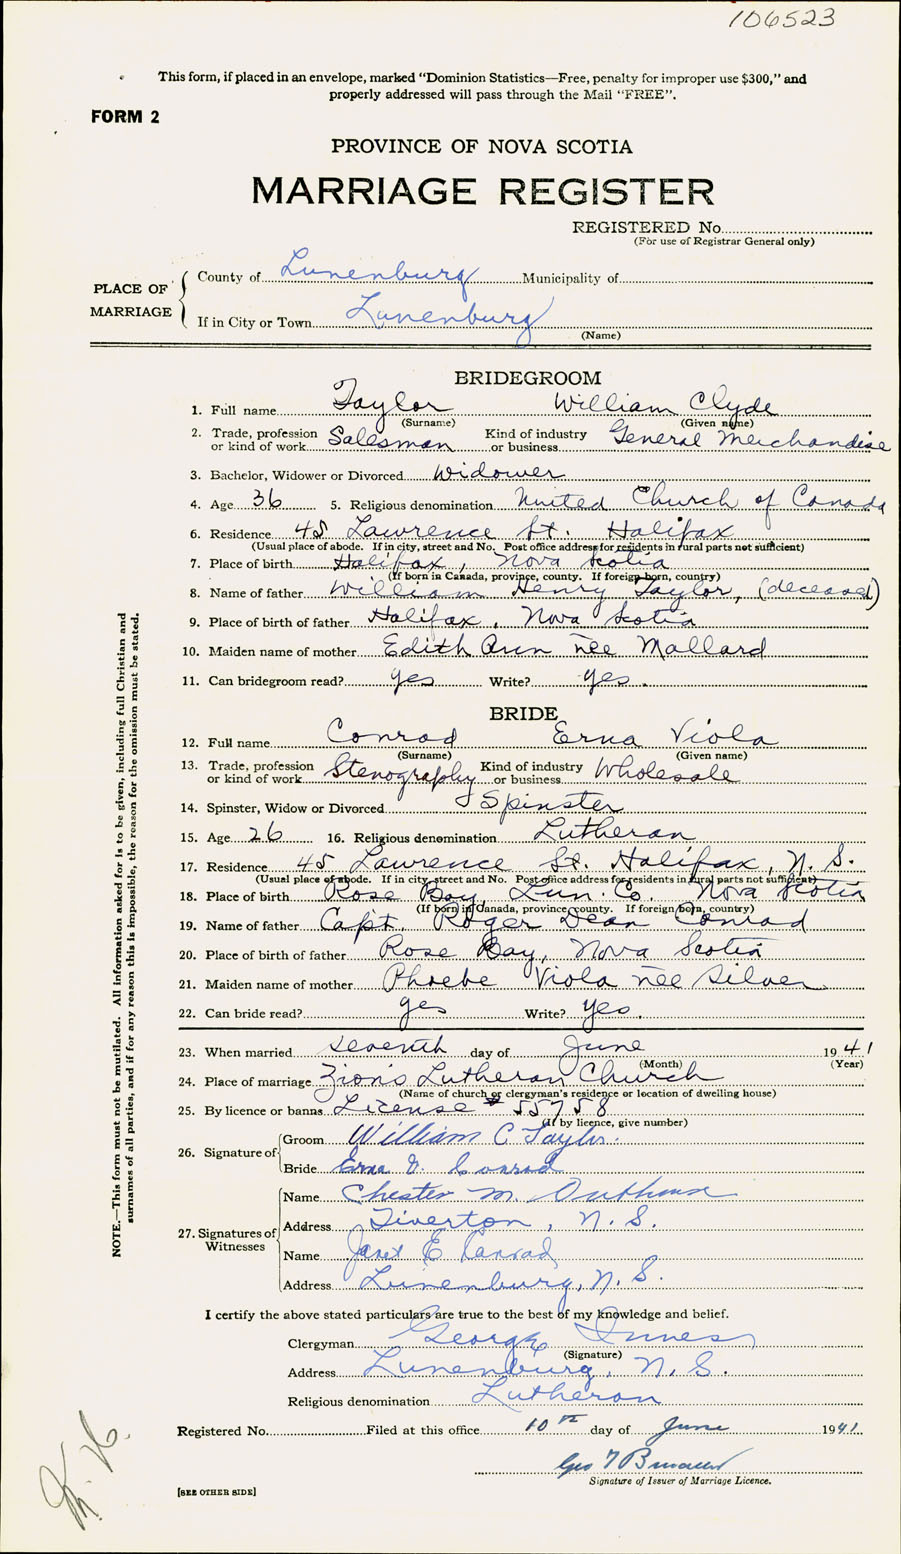 106523
This form, if placed in an envelope, marked “Dominion Statistics—Free, penalty for improper use $300,” and
properly addressed will pass through the Mail “FREE”.
FORM 2
PROVINCE OF NOVA SCOTIA
MARRIAGE REGISTER
REGISTERED No.
(For use of Registrar General only)
PLACE OF MARRIAGE
County of Lunenburg Municipality of
If in City or Town Lunenburg
(Name)
BRIDEGROOM
1. Full name Taylor William Clyde
(Surname) (Given name)
2. Trade, profession or kind of work Salesman Kind of industry or business General Merchandise
3. Bachelor, Widower or Divorced Widower
4. Age 36 5. Religious denomination United Church of Canada
6. Residence 45 Lawrence St. Halifax
(Usual place of abode. If in city, street and No. Post office address for residents in rural parts not sufficient)
7. Place of birth Halifax, Nova Scotia
(If born in Canada, province, county. If foreign born, country)
8. Name of father William Henry Taylor, (deceased)
9. Place of birth of father Halifax, Nova Scotia
10. Maiden name of mother Edith Ann nee Mallard
11. Can bridegroom read? yes Write? yes.
BRIDE
12. Full name Conrad Erna Viola
(Surname) (Given name)
13. Trade, profession or kind of work Stenography Kind of industry or business Wholesale
14. Spinster, Widow or Divorced Spinster
15. Age 26 16. Religious denomination Lutheran
17. Residence 45 Lawrence St. Halifax, N.S.
(Usual place of abode. If in city, street and No. Post office address for residents in rural parts not sufficient)
18. Place of birth Rose Bay Lun. Co. Nova Scotia
(If born in Canada, province, county. If foreign born, country)
19. Name of father Capt. Roger Dean Conrad
20. Place of birth of father Rose Bay, Nova Scotia
21. Maiden name of mother Phoebe Viola nee Silver
22. Can bride read? yes Write? yes.
23. When married seventh day of June 1941
(Month) (Year)
24. Place of marriage Zion's Lutheran Church
(Name of church or clergyman's residence or location of dwelling house)
25. By licence or banns License # 55758
(If by licence, give number)
26. Signature of
Groom William C Taylor.
Bride Erna V. Conrad
27. Signatures of Witnesses
Name Chester M.
Address Tiverton, N.S.
Name Janet E Conrad
Address Lunenburg, N.S.
I certify the above stated particulars are true to the best of my knowledge and belief.
Clergyman George Innes
(Signature)
Address Lunenburg, N.S.
Religious denomination Lutheran
Registered No. Filed at this office 10th day of June 1941.
Geo
Signature of Issuer of Marriage Licence.
[SEE OTHER SIDE]
NOTE.—This form must not be mutilated. All information asked for is to be given, including full Christian and
surnames of all parties, and if for any reason this is impossible, the reason for the omission must be stated.